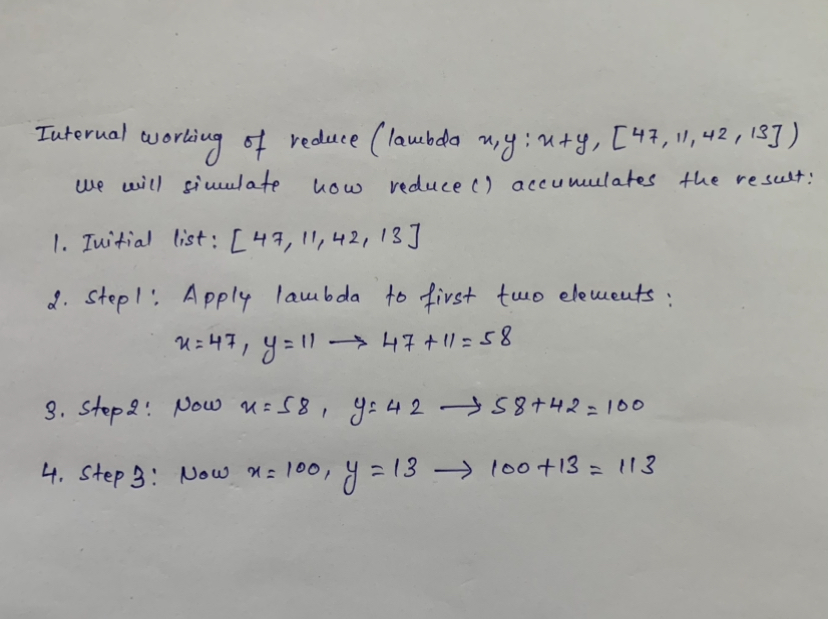 Internal working of reduce (lambda x,y : x+y, [47, 11, 42, 13])
we will simulate how reduce() accumulates the result:
1. Initial list: [47, 11, 42, 13]
2. Step1: Apply lambda to first two elements:
x=47, y=11 → 47+11=58
3. Step2: Now x=58, y=42 → 58+42=100
4. Step3: Now x=100, y=13 → 100+13=113